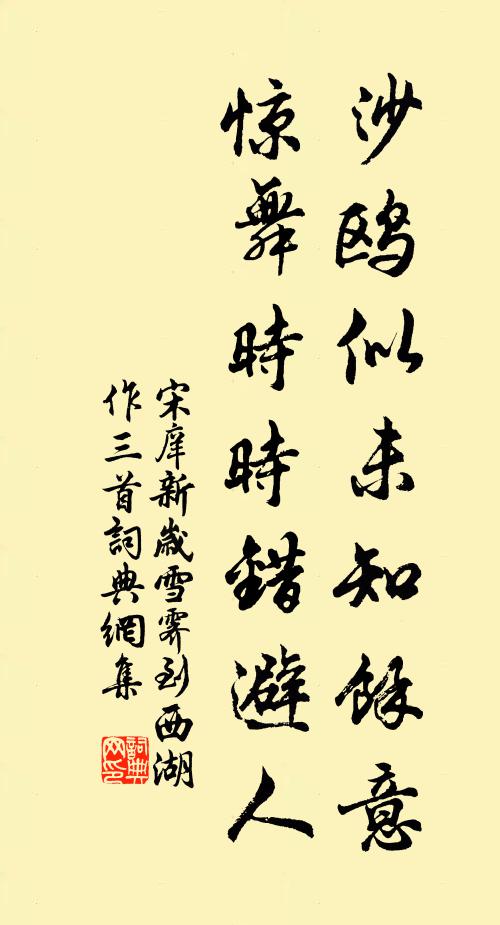 沙鸥似未知餘意
惊舞時時錯避人
宋庠新歲雪霽到西湖
作三首詞典網集
詞典网印